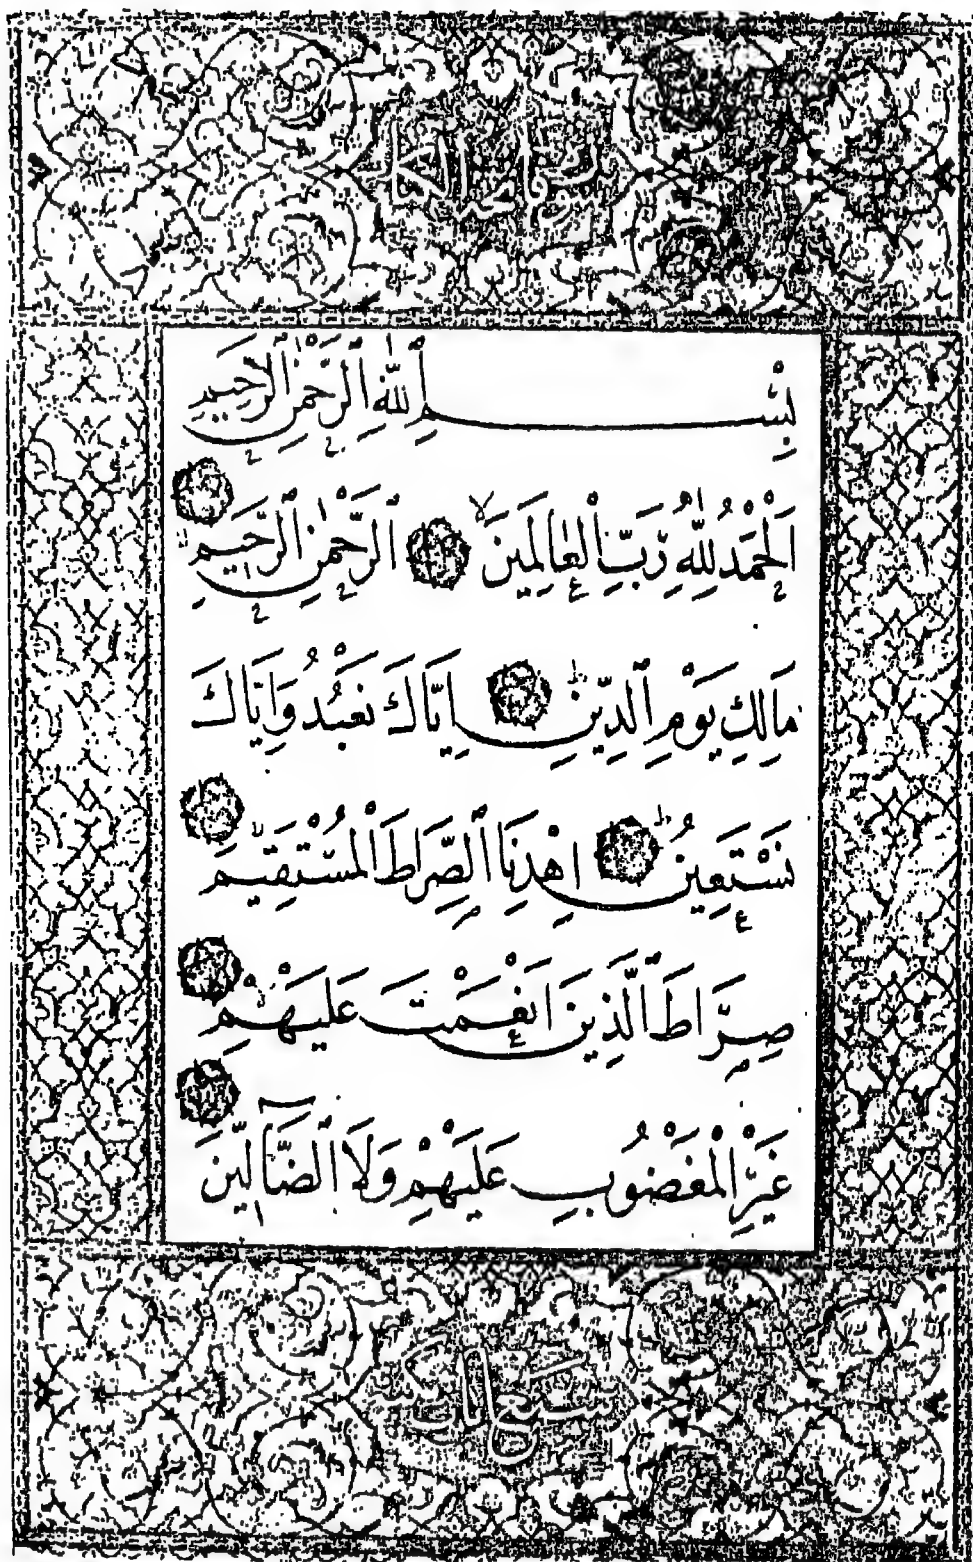 سورة فاتحة الكتاب
بِسْمِ ٱللّٰهِ ٱلرَّحْمٰنِ ٱلرَّحِيمِ
اَلْحَمْدُ لِلّٰهِ رَبِّ ٱلْعَالَمِينَ ۙ ٱلرَّحْمٰنِ ٱلرَّحِيمِ
مَالِكِ يَوْمِ ٱلدِّينِ ۗ اِيَّاكَ نَعْبُدُ وَاِيَّاكَ
نَسْتَعِينُ ۗ اِهْدِنَا ٱلصِّرَاطَ ٱلْمُسْتَقِيمَ
صِرَاطَ ٱلَّذِينَ اَنْعَمْتَ عَلَيْهِمْ
غَيْرِ ٱلْمَغْضُوبِ عَلَيْهِمْ وَلَا ٱلضَّآلِّينَ